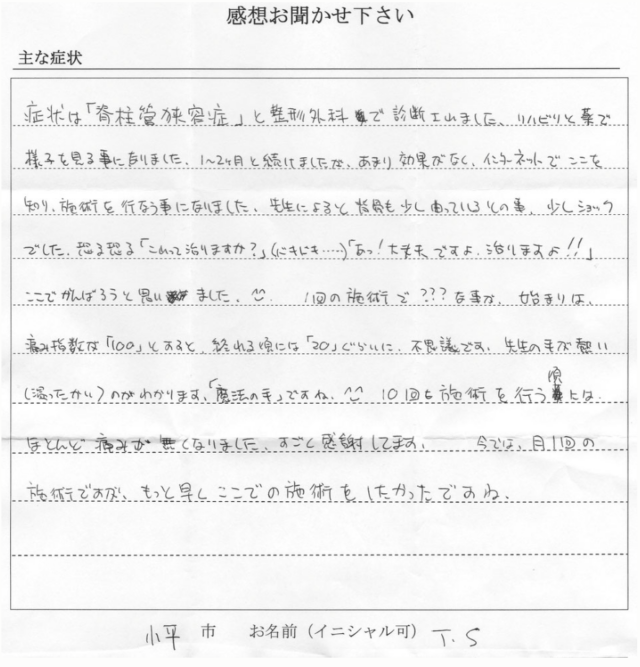 感想お聞かせ下さい
主な症状
症状は「脊柱管狭窄症」と整形外科で診断されました、リハビリと薬で
様子を見る事になりました、1〜2ヶ月と続けましたが、あまり効果がなく、インターネットでここを
知り、施術を行なう事になりました、先生によると背骨も少し曲っているとの事、少しショック
でした、恐る恐る「これって治りますか?」(にキビキ……)「あっ!大丈夫ですよ、治りますよ!!」
ここでがんばろうと思いました、 1回の施術で???な事が、始まりは、
痛み指数が「100」とすると、終れる頃には「20」ぐらいに、不思議です、先生の手が熱い
(温ったかい)のがわかります、「魔法の手」ですね、^^ 10回も施術を行う頃には
ほとんど痛みが無くなりました、すごく感謝してます、 今では、月1回の
施術ですが、もっと早くここでの施術をしたかったですね、
小平 市 お名前(イニシャル可) T.S